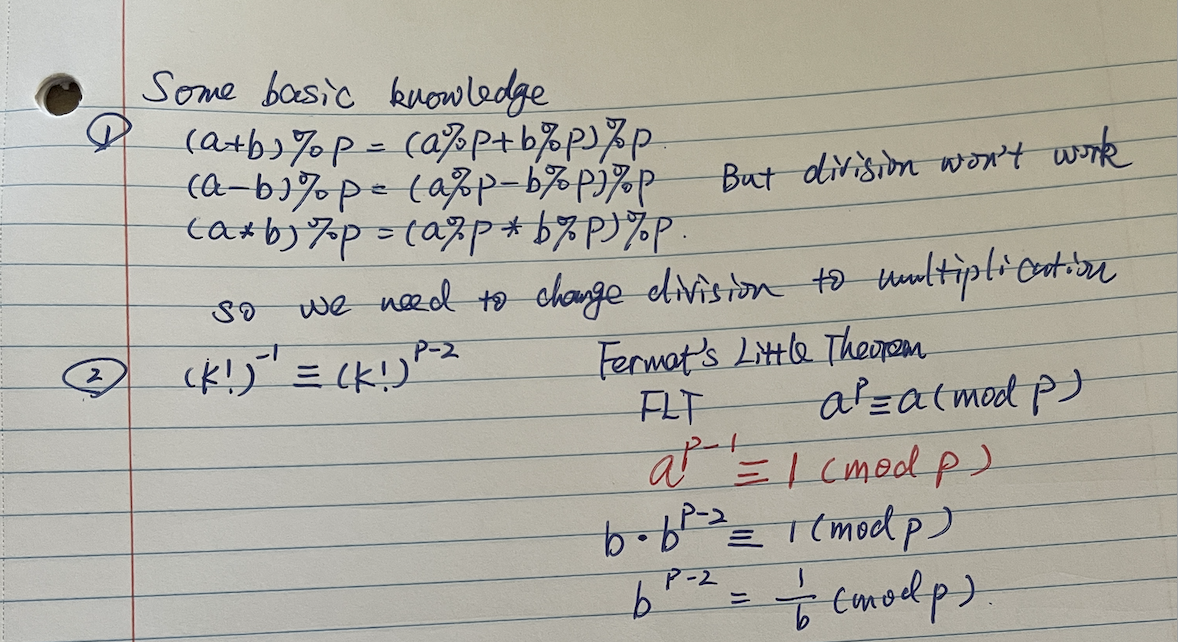 Some basic knowledge
① (a+b)%p = (a%p+b%p)%p.
(a-b)%p = (a%p-b%p)%p But division won't work
(a*b)%p = (a%p*b%p)%p.
so we need to change division to multiplication
② (k!)⁻¹ ≡ (k!)ᵖ⁻² Fermat's Little Theorem
FLT aᵖ≡a(mod p)
aᵖ⁻¹≡1(mod p)
b·bᵖ⁻²≡1(mod p)
bᵖ⁻² = 1/b (mod p).